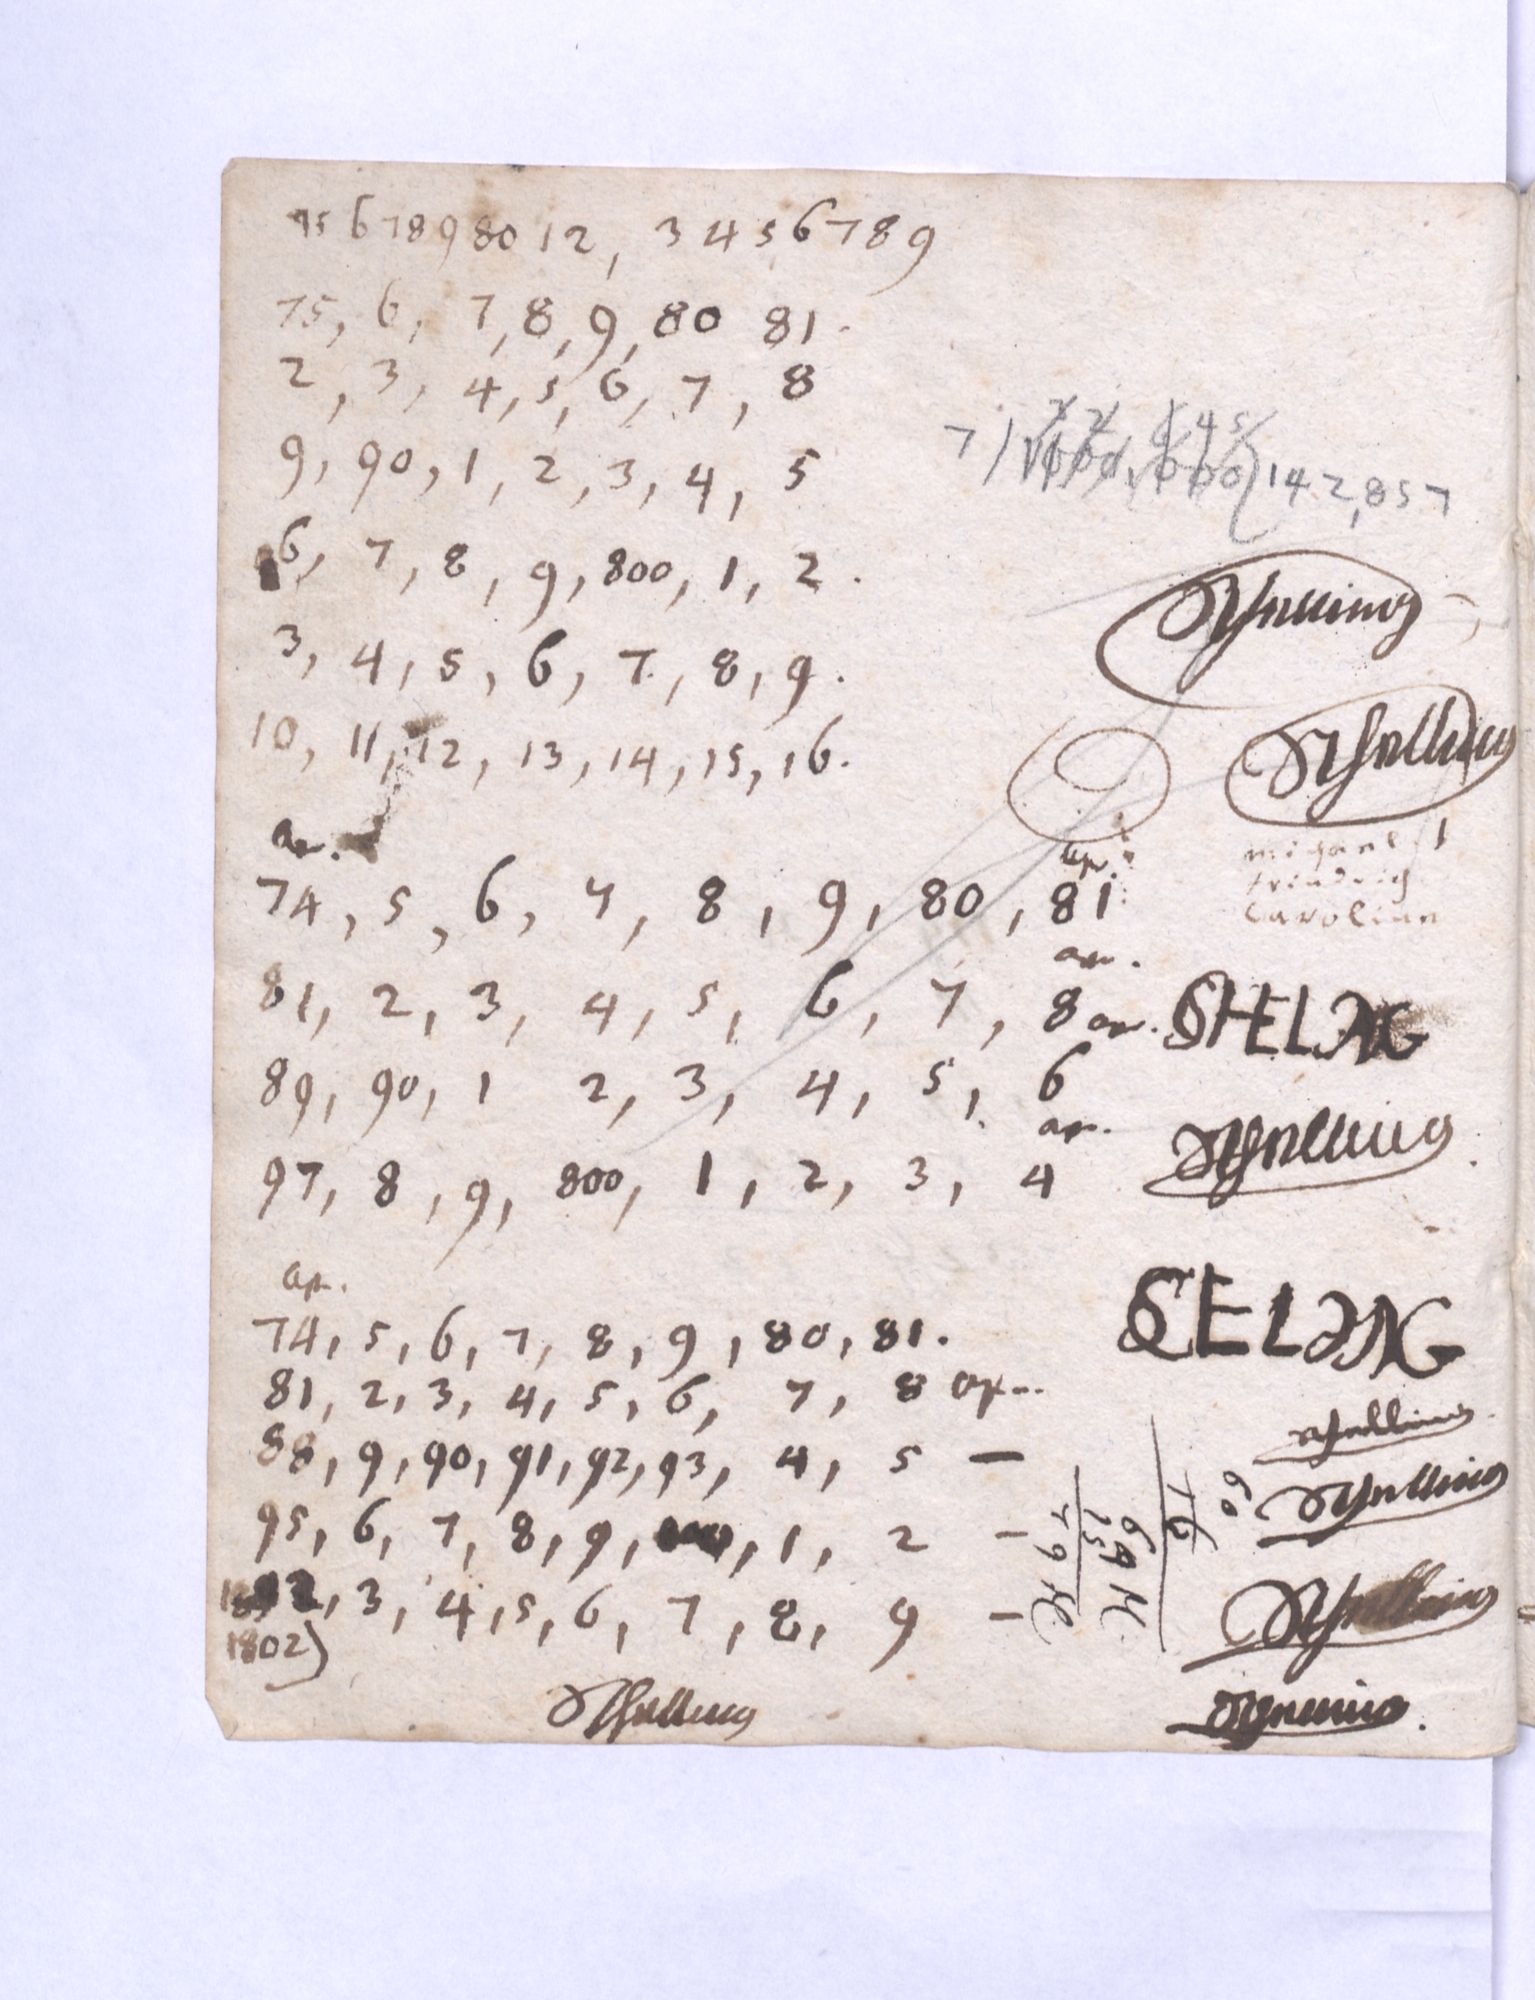 75 6 7 8 9 80 1 2, 3 4 5 6 7 8 9
75, 6, 7, 8, 9, 80 81.
2, 3, 4, 5, 6, 7, 8
9, 90, 1, 2, 3, 4, 5
6, 7, 8, 9, 800, 1, 2.
3, 4, 5, 6, 7, 8, 9.
10, 11, 12, 13, 14, 15, 16.
ap.
74, 5, 6, 7, 8, 9, 80, 81
ap.
ap.
81, 2, 3, 4, 5, 6, 7, 8 ap.
89, 90, 1 2, 3, 4, 5, 6
ap.
97, 8, 9, 800, 1, 2, 3, 4
ap.
74, 5, 6, 7, 8, 9, 80, 81.
81, 2, 3, 4, 5, 6, 7, 8 ap..
88, 9, 90, 91, 92, 93, 4, 5 —
95, 6, 7, 8, 9, 1, 2 —
3, 4, 5, 6, 7, 8, 9 —
1802)
Schelling
142,857
Schelling
Schelling
Michael
Friedrich
Caroline
SHELING
Schelling
SCELING
Schelling
Schelling
Schelling
Schelling.
76
60